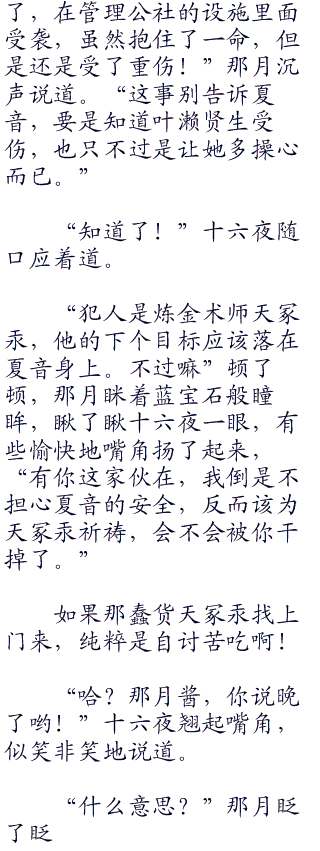 了，在管理公社的设施里面
受袭，虽然抱住了一命，但
是还是受了重伤！”那月沉
声说道。“这事别告诉夏
音，要是知道叶濑贤生受
伤，也只不过是让她多操心
而已。”
“知道了！”十六夜随
口应着道。
“犯人是炼金术师天冢
汞，他的下个目标应该落在
夏音身上。不过嘛”顿了
顿，那月眯着蓝宝石般瞳
眸，瞅了瞅十六夜一眼，有
些愉快地嘴角扬了起来，
“有你这家伙在，我倒是不
担心夏音的安全，反而该为
天冢汞祈祷，会不会被你干
掉了。”
如果那蠢货天冢汞找上
门来，纯粹是自讨苦吃啊！
“哈？那月酱，你说晚
了哟！”十六夜翘起嘴角，
似笑非笑地说道。
“什么意思？”那月眨
了眨